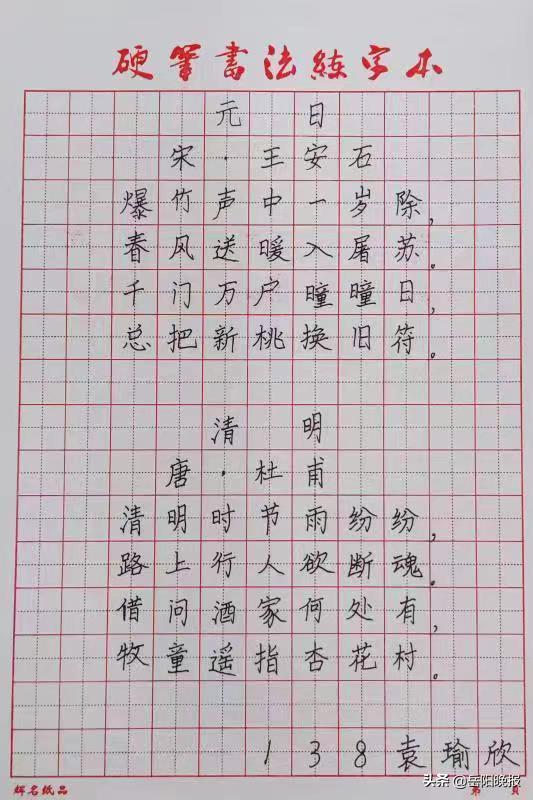 硬筆書法練字本
元 日
宋·王安石
爆竹声中一岁除,
春风送暖入屠苏。
千门万户曈曈日,
总把新桃换旧符。
清 明
唐·杜甫
清明时节雨纷纷,
路上行人欲断魂。
借问酒家何处有,
牧童遥指杏花村。
138袁瑜欣
辉名纸品
第 页
头条@岳阳晚报